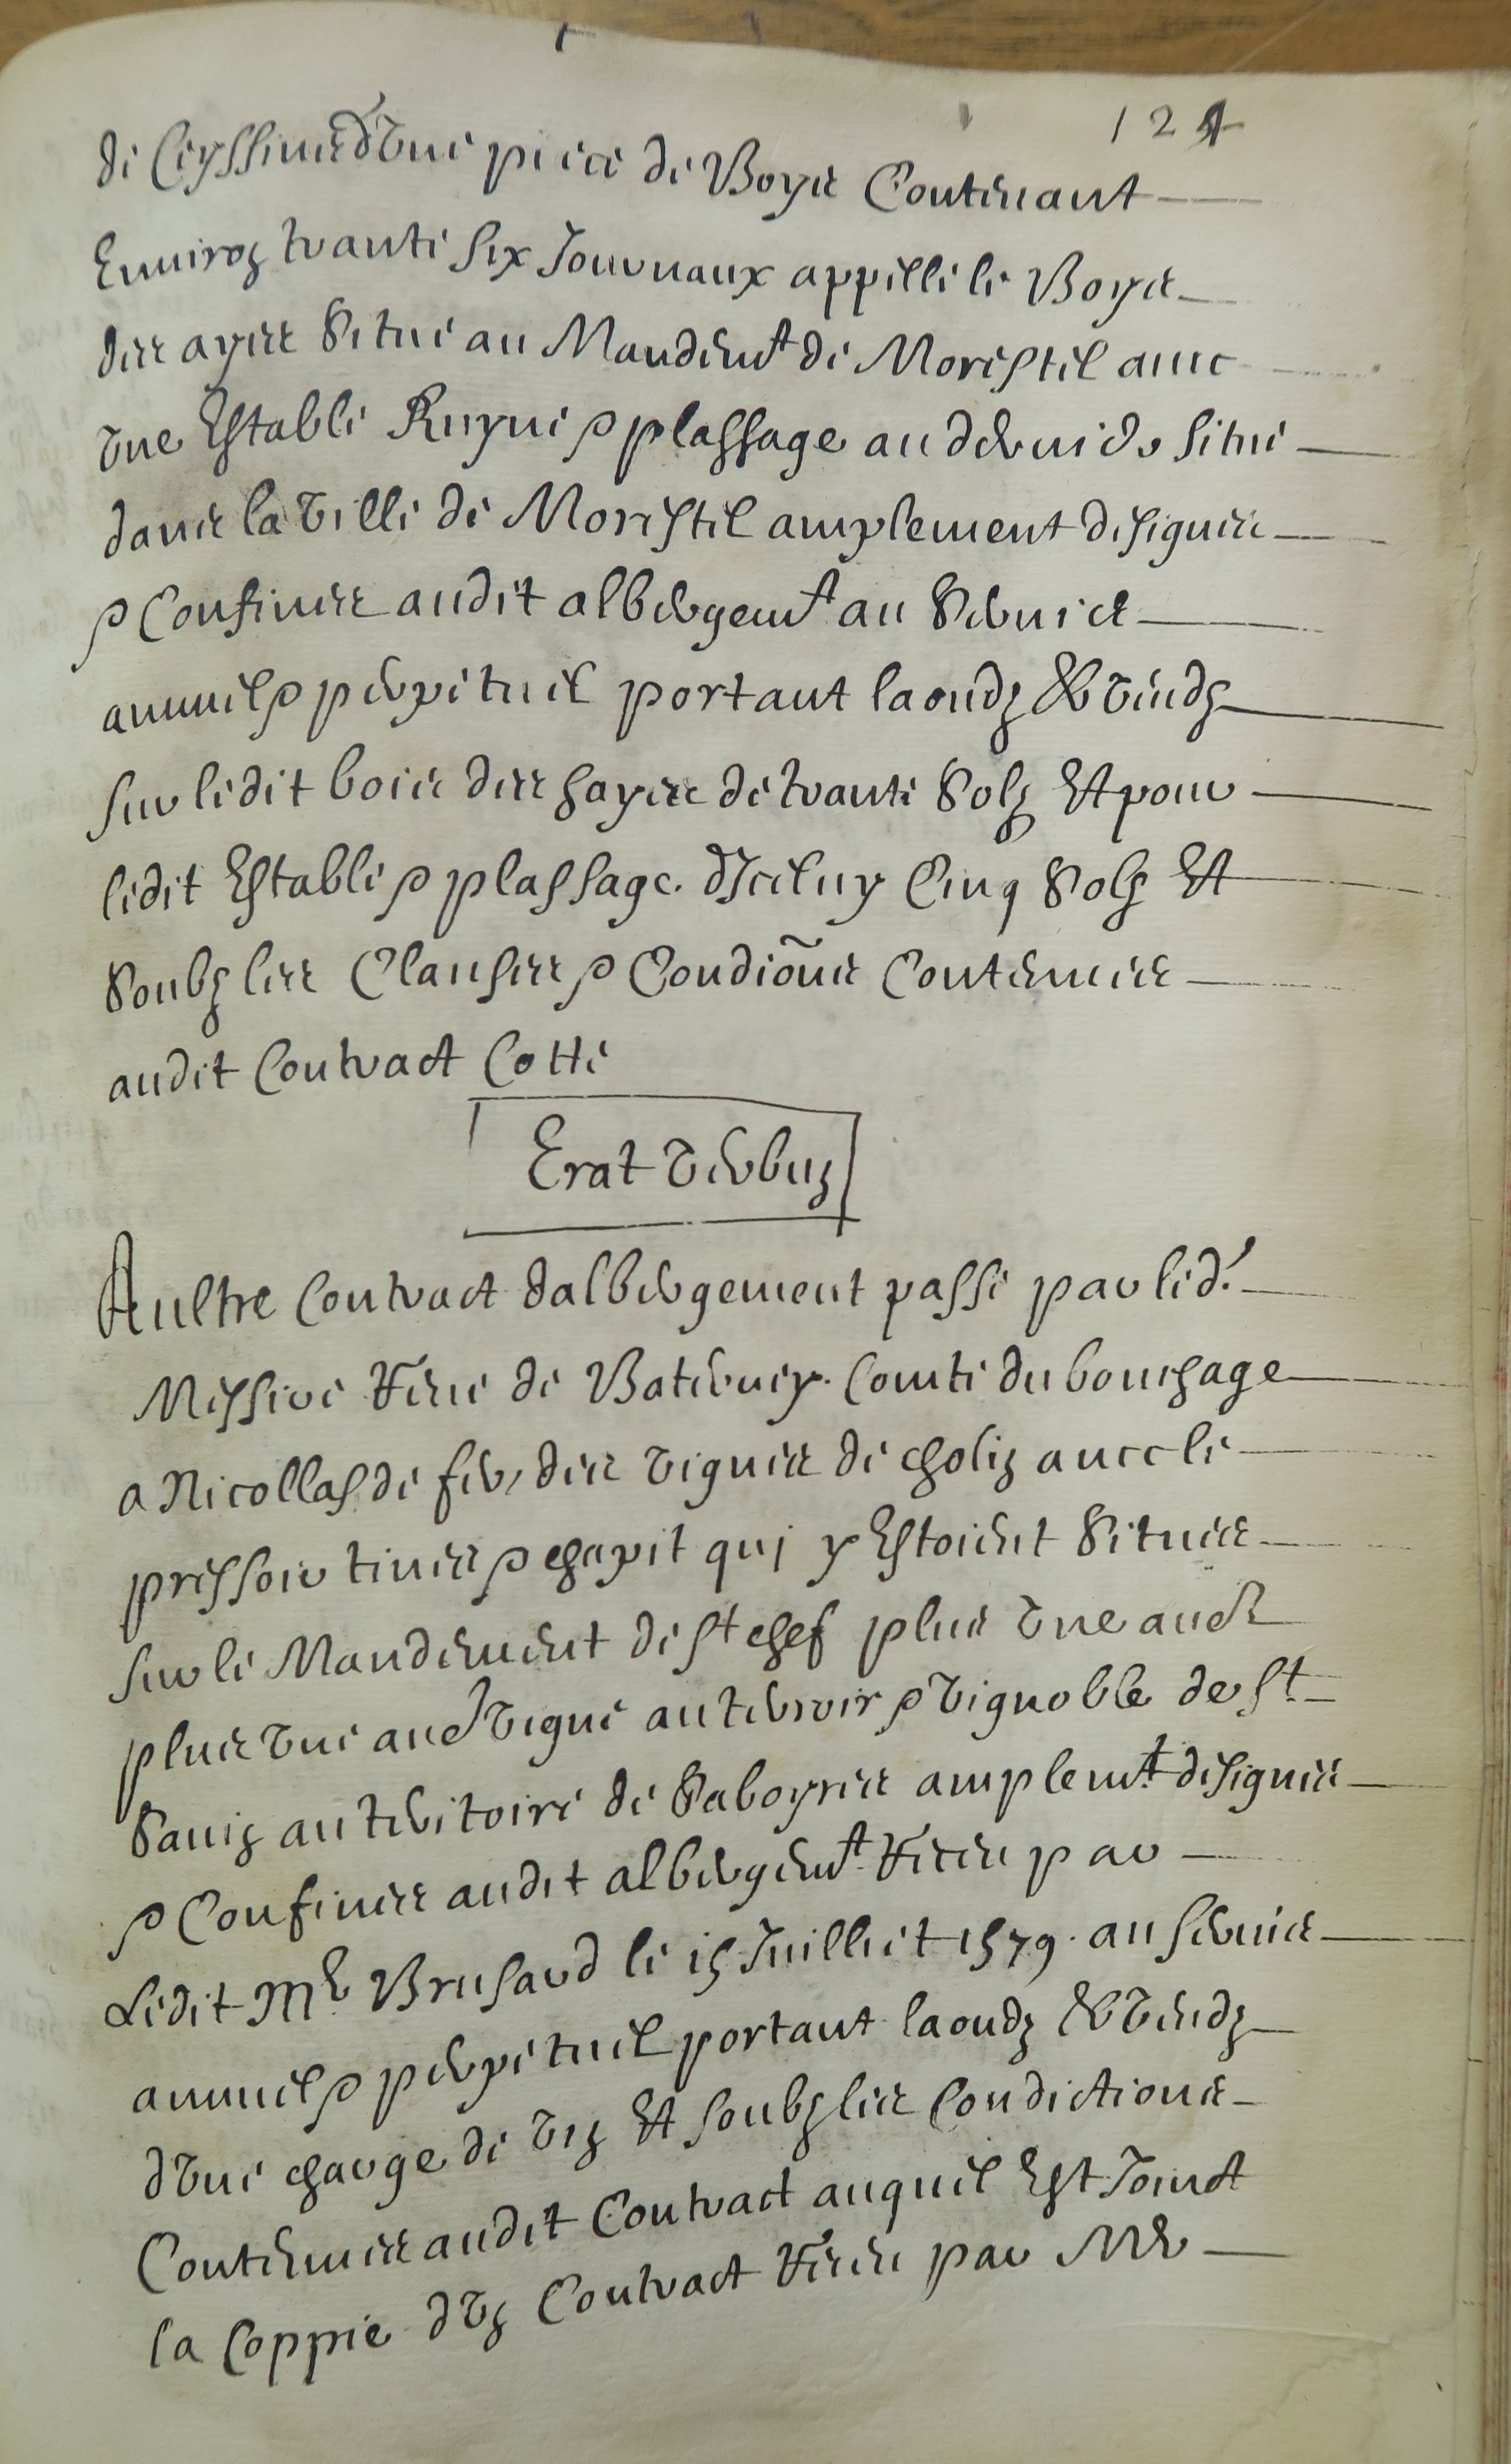 124
de Ceyssins d'une piece de Boys Contenant
Environ trante six Journaux appellé le Boys
des ayes situé au Mandemt de Morestel avec
une Estable Ruyné & plassage au devans situé
dans la ville de Morestel amplement designés
& Confinés audit albergemt au Service
annuel & perpetuel portant laondz & vendz
sur ledit bois des hayes de trante solz Et pour
ledit Estable & plassage d'Iceluy Cinq solz Et
soubz les Clauses & Condiõns Contenues
audit Contract Cotté
Erat verbum
Aultre Contract dalbergement passé par led.
Messire René de Baterney Comte du bouchage
a Nicollas de des vignes de cholin avec le
pressoir tines & chapit qui y Estoient situés
sur le Mandement de st chef plus une aut
plus une aut vigne au terroir & vignoble de st
Savin au teritoire de Saboyres amplemt designés
& Confinés audit albergemt Receu par
Ledit Me Brusard le 15 Juillet 1579. au service
annuel & perpetuel portant laondz & vendz
d'une charge de vin Et soubz les Condictions
Contenues audit Contract auquel Est Joinct
la Coppie d'un Contract Receu par Me